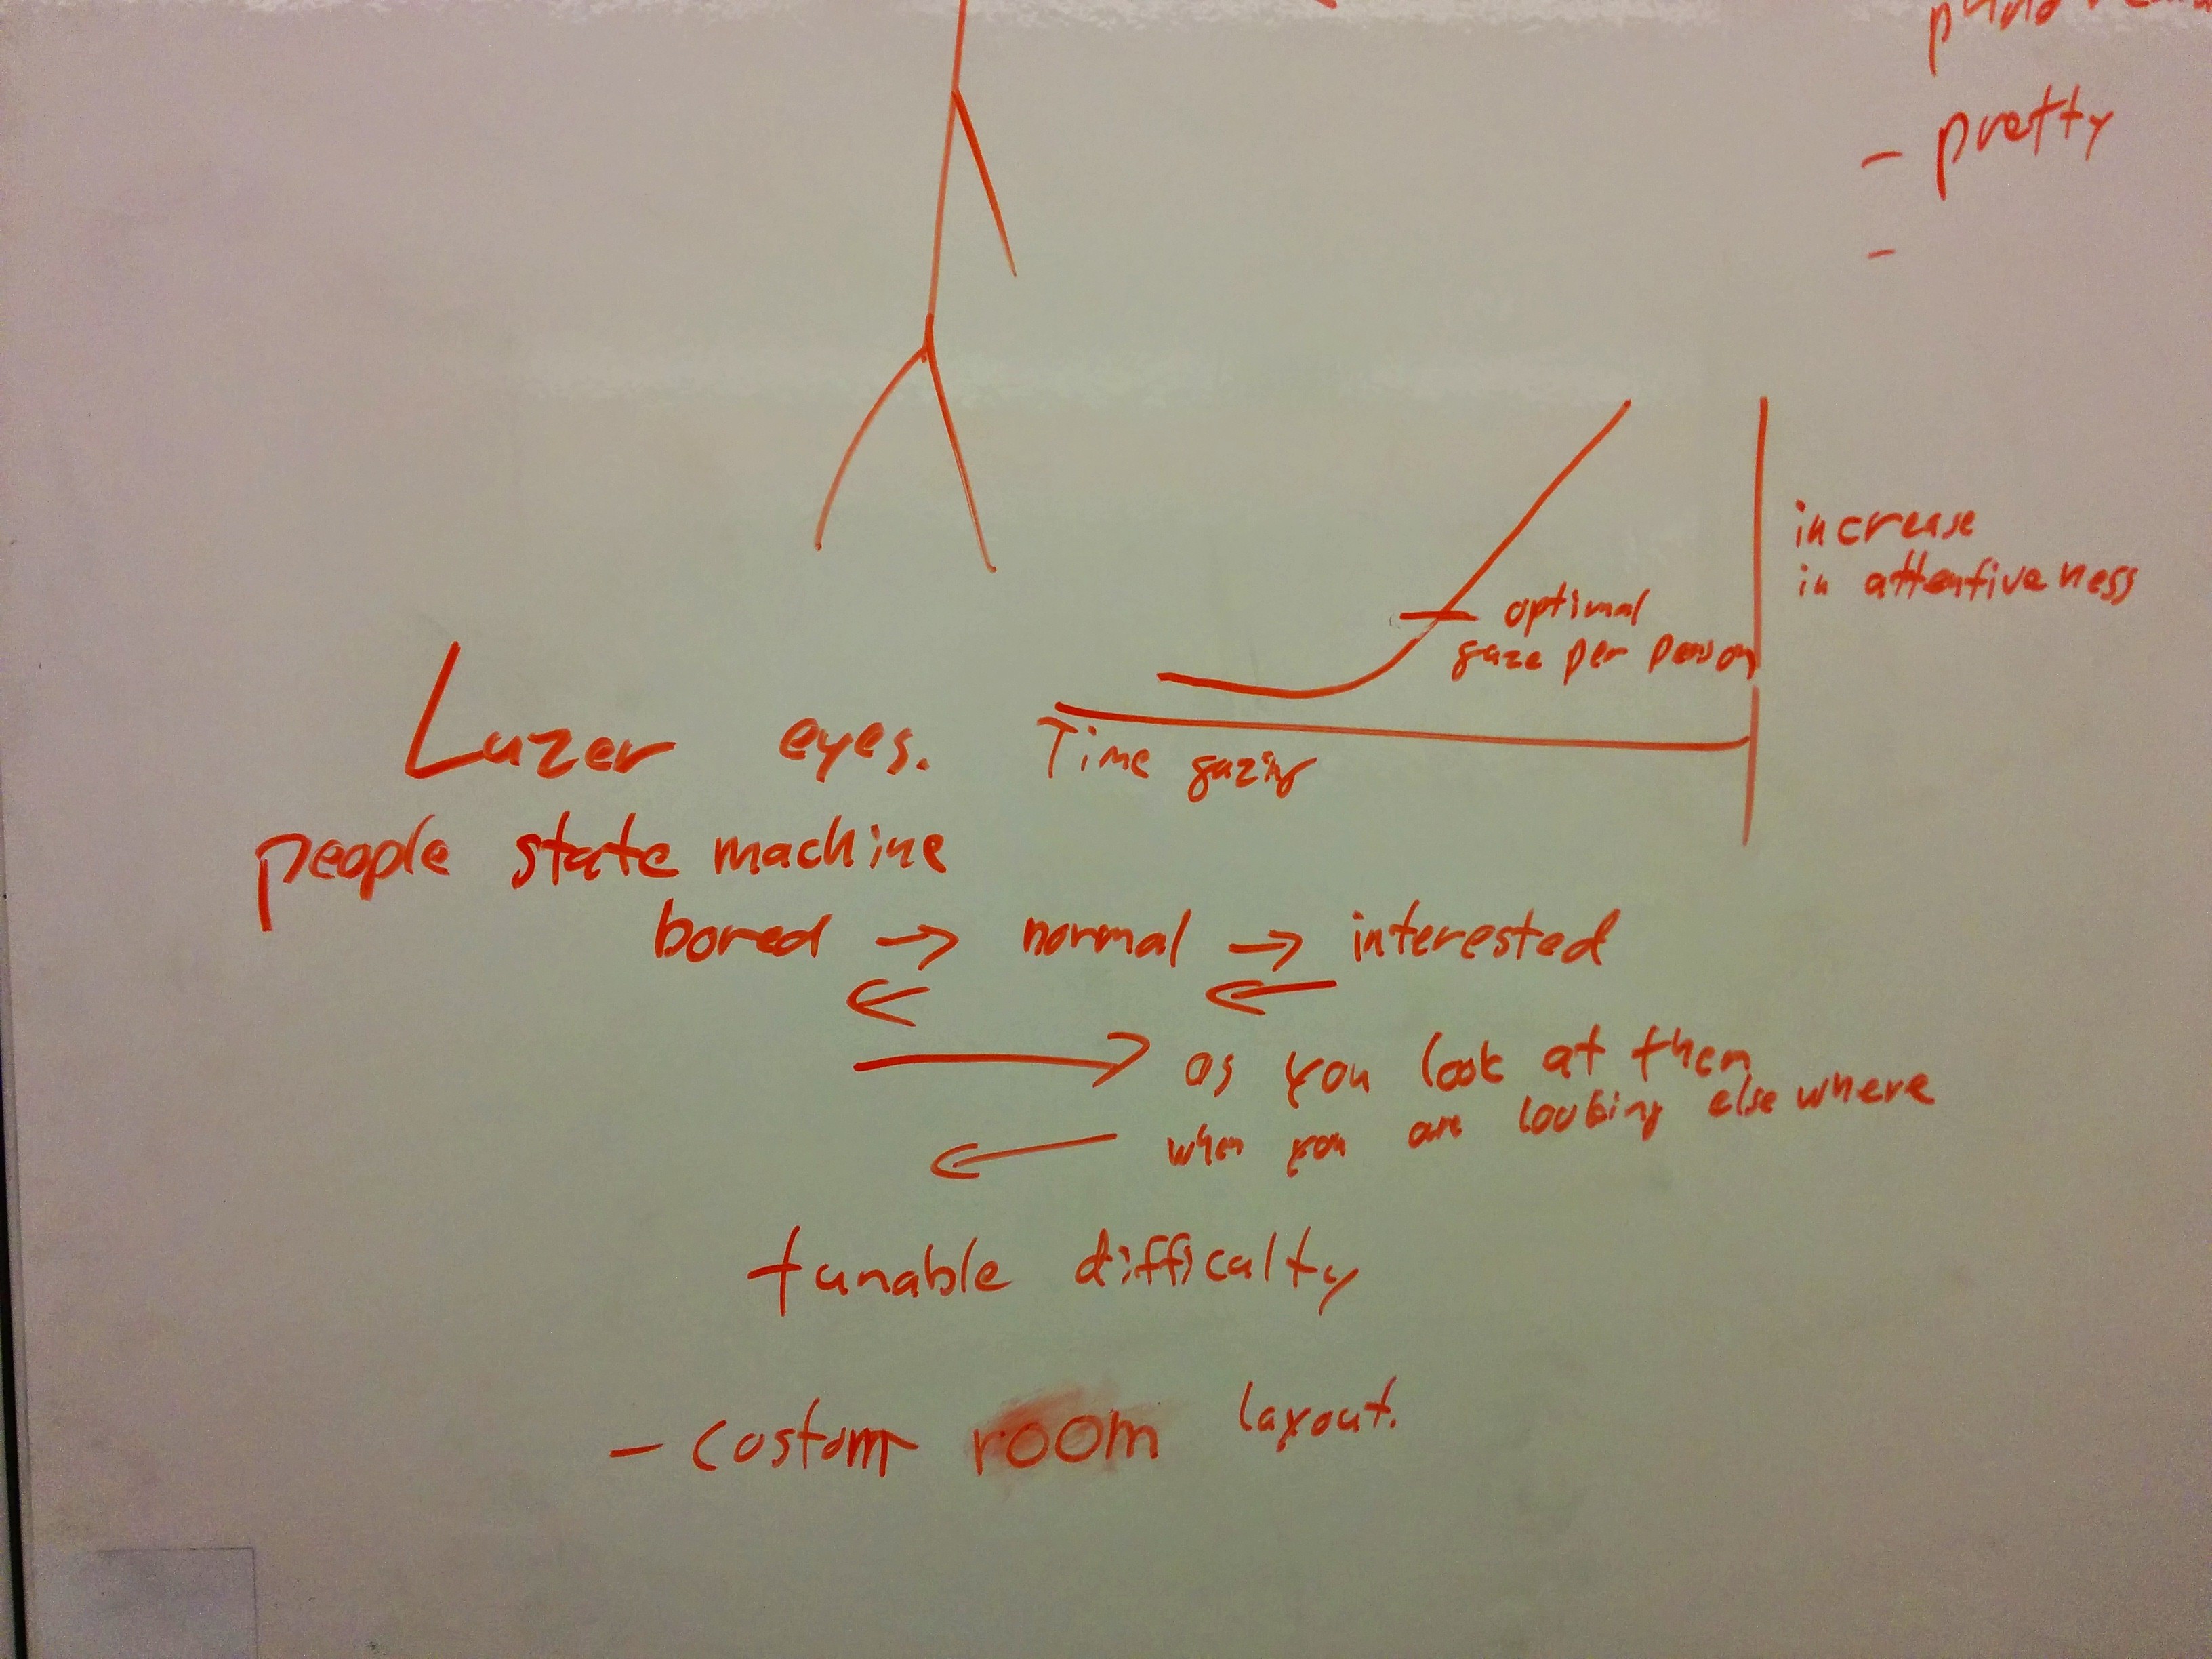 - pretty
-
increase
in attentiveness
optimal
gaze per person
Time gazing
Lazer eyes.
people state machine
bored → normal → interested
← ←
→ as you look at them
← when you are looking elsewhere
tunable difficalty
- costom room layout.